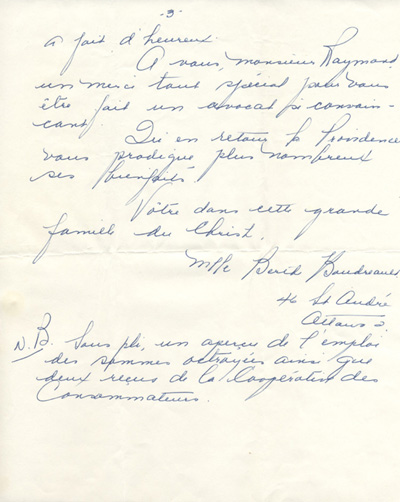 -3-
a fait d'heureux.
A vous, monsieur Raymond
un merci tout spécial pour vous
être fait un avocat si convain-
cant.
Qu'en retour la Providence
vous prodigue plus nombreux
ses bienfaits.
Vôtre dans cette grande
famille du Christ,
Mlle Boudreault
46 St André
Ottawa 2.
N.B. Sous pli, un aperçu de l'emploi
des sommes octroyées ainsi que
deux reçus de la Coopérative des
Consommateurs.